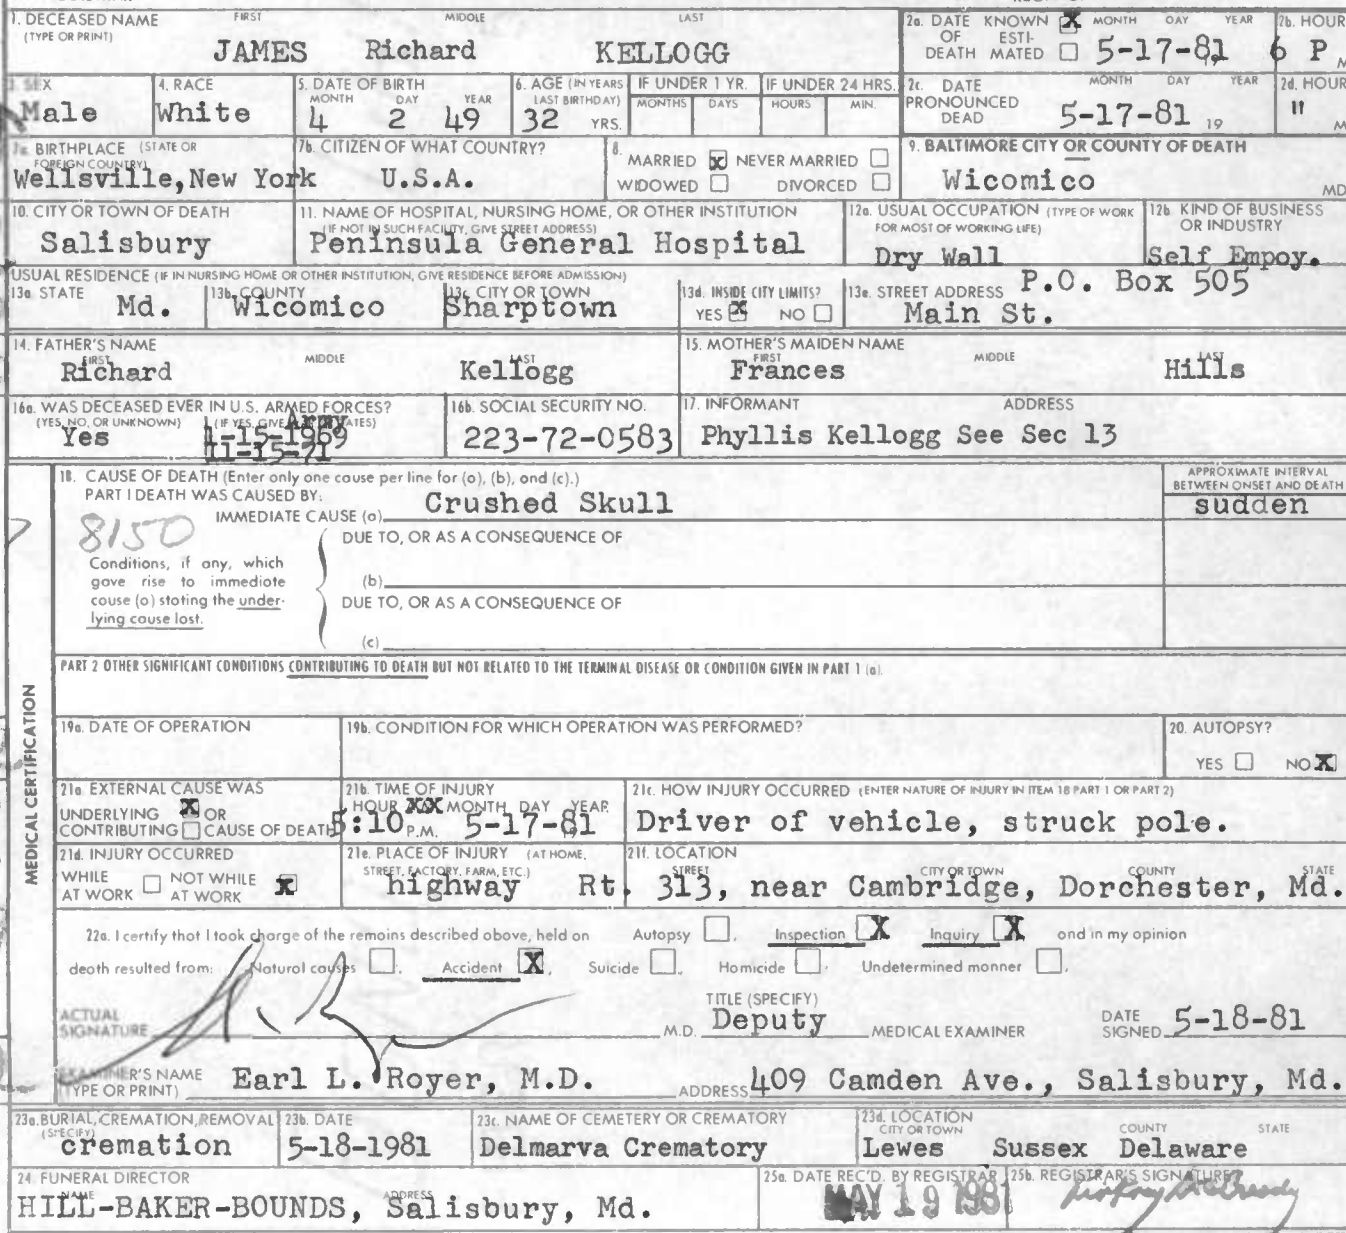 1. DECEASED NAME FIRST MIDDLE LAST
(TYPE OR PRINT)
JAMES Richard KELLOGG
2a. DATE KNOWN X MONTH DAY YEAR
OF ESTI-
DEATH MATED 5-17-81
2b. HOUR
6 P M
3. SEX
Male
4. RACE
White
5. DATE OF BIRTH
MONTH DAY YEAR
4 2 49
6. AGE (IN YEARS
LAST BIRTHDAY)
32 YRS.
IF UNDER 1 YR.
MONTHS DAYS
IF UNDER 24 HRS.
HOURS MIN.
2c. DATE MONTH DAY YEAR
PRONOUNCED
DEAD 5-17-81 19
2d. HOUR
" M
7a. BIRTHPLACE (STATE OR
FOREIGN COUNTRY)
Wellsville, New York
7b. CITIZEN OF WHAT COUNTRY?
U.S.A.
8.
MARRIED X NEVER MARRIED
WIDOWED DIVORCED
9. BALTIMORE CITY OR COUNTY OF DEATH
Wicomico MD
10. CITY OR TOWN OF DEATH
Salisbury
11. NAME OF HOSPITAL, NURSING HOME, OR OTHER INSTITUTION
(IF NOT IN SUCH FACILITY, GIVE STREET ADDRESS)
Peninsula General Hospital
12a. USUAL OCCUPATION (TYPE OF WORK
FOR MOST OF WORKING LIFE)
Dry Wall
12b. KIND OF BUSINESS
OR INDUSTRY
Self Empoy.
USUAL RESIDENCE (IF IN NURSING HOME OR OTHER INSTITUTION, GIVE RESIDENCE BEFORE ADMISSION)
13a. STATE
Md.
13b. COUNTY
Wicomico
13c. CITY OR TOWN
Sharptown
13d. INSIDE CITY LIMITS?
YES X NO
13e. STREET ADDRESS P.O. Box 505
Main St.
14. FATHER'S NAME
FIRST MIDDLE LAST
Richard Kellogg
15. MOTHER'S MAIDEN NAME
FIRST MIDDLE LAST
Frances Hills
16a. WAS DECEASED EVER IN U.S. ARMED FORCES?
(YES, NO, OR UNKNOWN) (IF YES, GIVE DATES)
Army
Yes 1-15-1969
11-15-71
16b. SOCIAL SECURITY NO.
223-72-0583
17. INFORMANT ADDRESS
Phyllis Kellogg See Sec 13
MEDICAL CERTIFICATION
18. CAUSE OF DEATH (Enter only one cause per line for (a), (b), and (c).)
PART I DEATH WAS CAUSED BY:
IMMEDIATE CAUSE (a) Crushed Skull
APPROXIMATE INTERVAL
BETWEEN ONSET AND DEATH
sudden
8150
DUE TO, OR AS A CONSEQUENCE OF
Conditions, if any, which
gave rise to immediate
cause (a) stating the under-
lying cause last.
(b)
DUE TO, OR AS A CONSEQUENCE OF
(c)
PART 2 OTHER SIGNIFICANT CONDITIONS CONTRIBUTING TO DEATH BUT NOT RELATED TO THE TERMINAL DISEASE OR CONDITION GIVEN IN PART 1 (a).
19a. DATE OF OPERATION
19b. CONDITION FOR WHICH OPERATION WAS PERFORMED?
20. AUTOPSY?
YES NO X
21a. EXTERNAL CAUSE WAS
UNDERLYING X OR
CONTRIBUTING CAUSE OF DEATH
21b. TIME OF INJURY
HOUR XX MONTH DAY YEAR
5:10 P.M. 5-17-81
21c. HOW INJURY OCCURRED (ENTER NATURE OF INJURY IN ITEM 18 PART 1 OR PART 2)
Driver of vehicle, struck pole.
21d. INJURY OCCURRED
WHILE NOT WHILE
AT WORK AT WORK X
21e. PLACE OF INJURY (AT HOME,
STREET, FACTORY, FARM, ETC.)
highway
21f. LOCATION
STREET CITY OR TOWN COUNTY STATE
Rt. 313, near Cambridge, Dorchester, Md.
22a. I certify that I took charge of the remains described above, held on Autopsy , Inspection X Inquiry X and in my opinion
death resulted from: Natural causes , Accident X , Suicide , Homicide , Undetermined manner .
ACTUAL
SIGNATURE M.D.
TITLE (SPECIFY)
Deputy MEDICAL EXAMINER
DATE
SIGNED 5-18-81
EXAMINER'S NAME
(TYPE OR PRINT) Earl L. Royer, M.D.
ADDRESS 409 Camden Ave., Salisbury, Md.
23a. BURIAL, CREMATION, REMOVAL
(SPECIFY)
cremation
23b. DATE
5-18-1981
23c. NAME OF CEMETERY OR CREMATORY
Delmarva Crematory
23d. LOCATION
CITY OR TOWN COUNTY STATE
Lewes Sussex Delaware
24. FUNERAL DIRECTOR
NAME ADDRESS
HILL-BAKER-BOUNDS, Salisbury, Md.
25a. DATE REC'D. BY REGISTRAR
MAY 19 1981
25b. REGISTRAR'S SIGNATURE